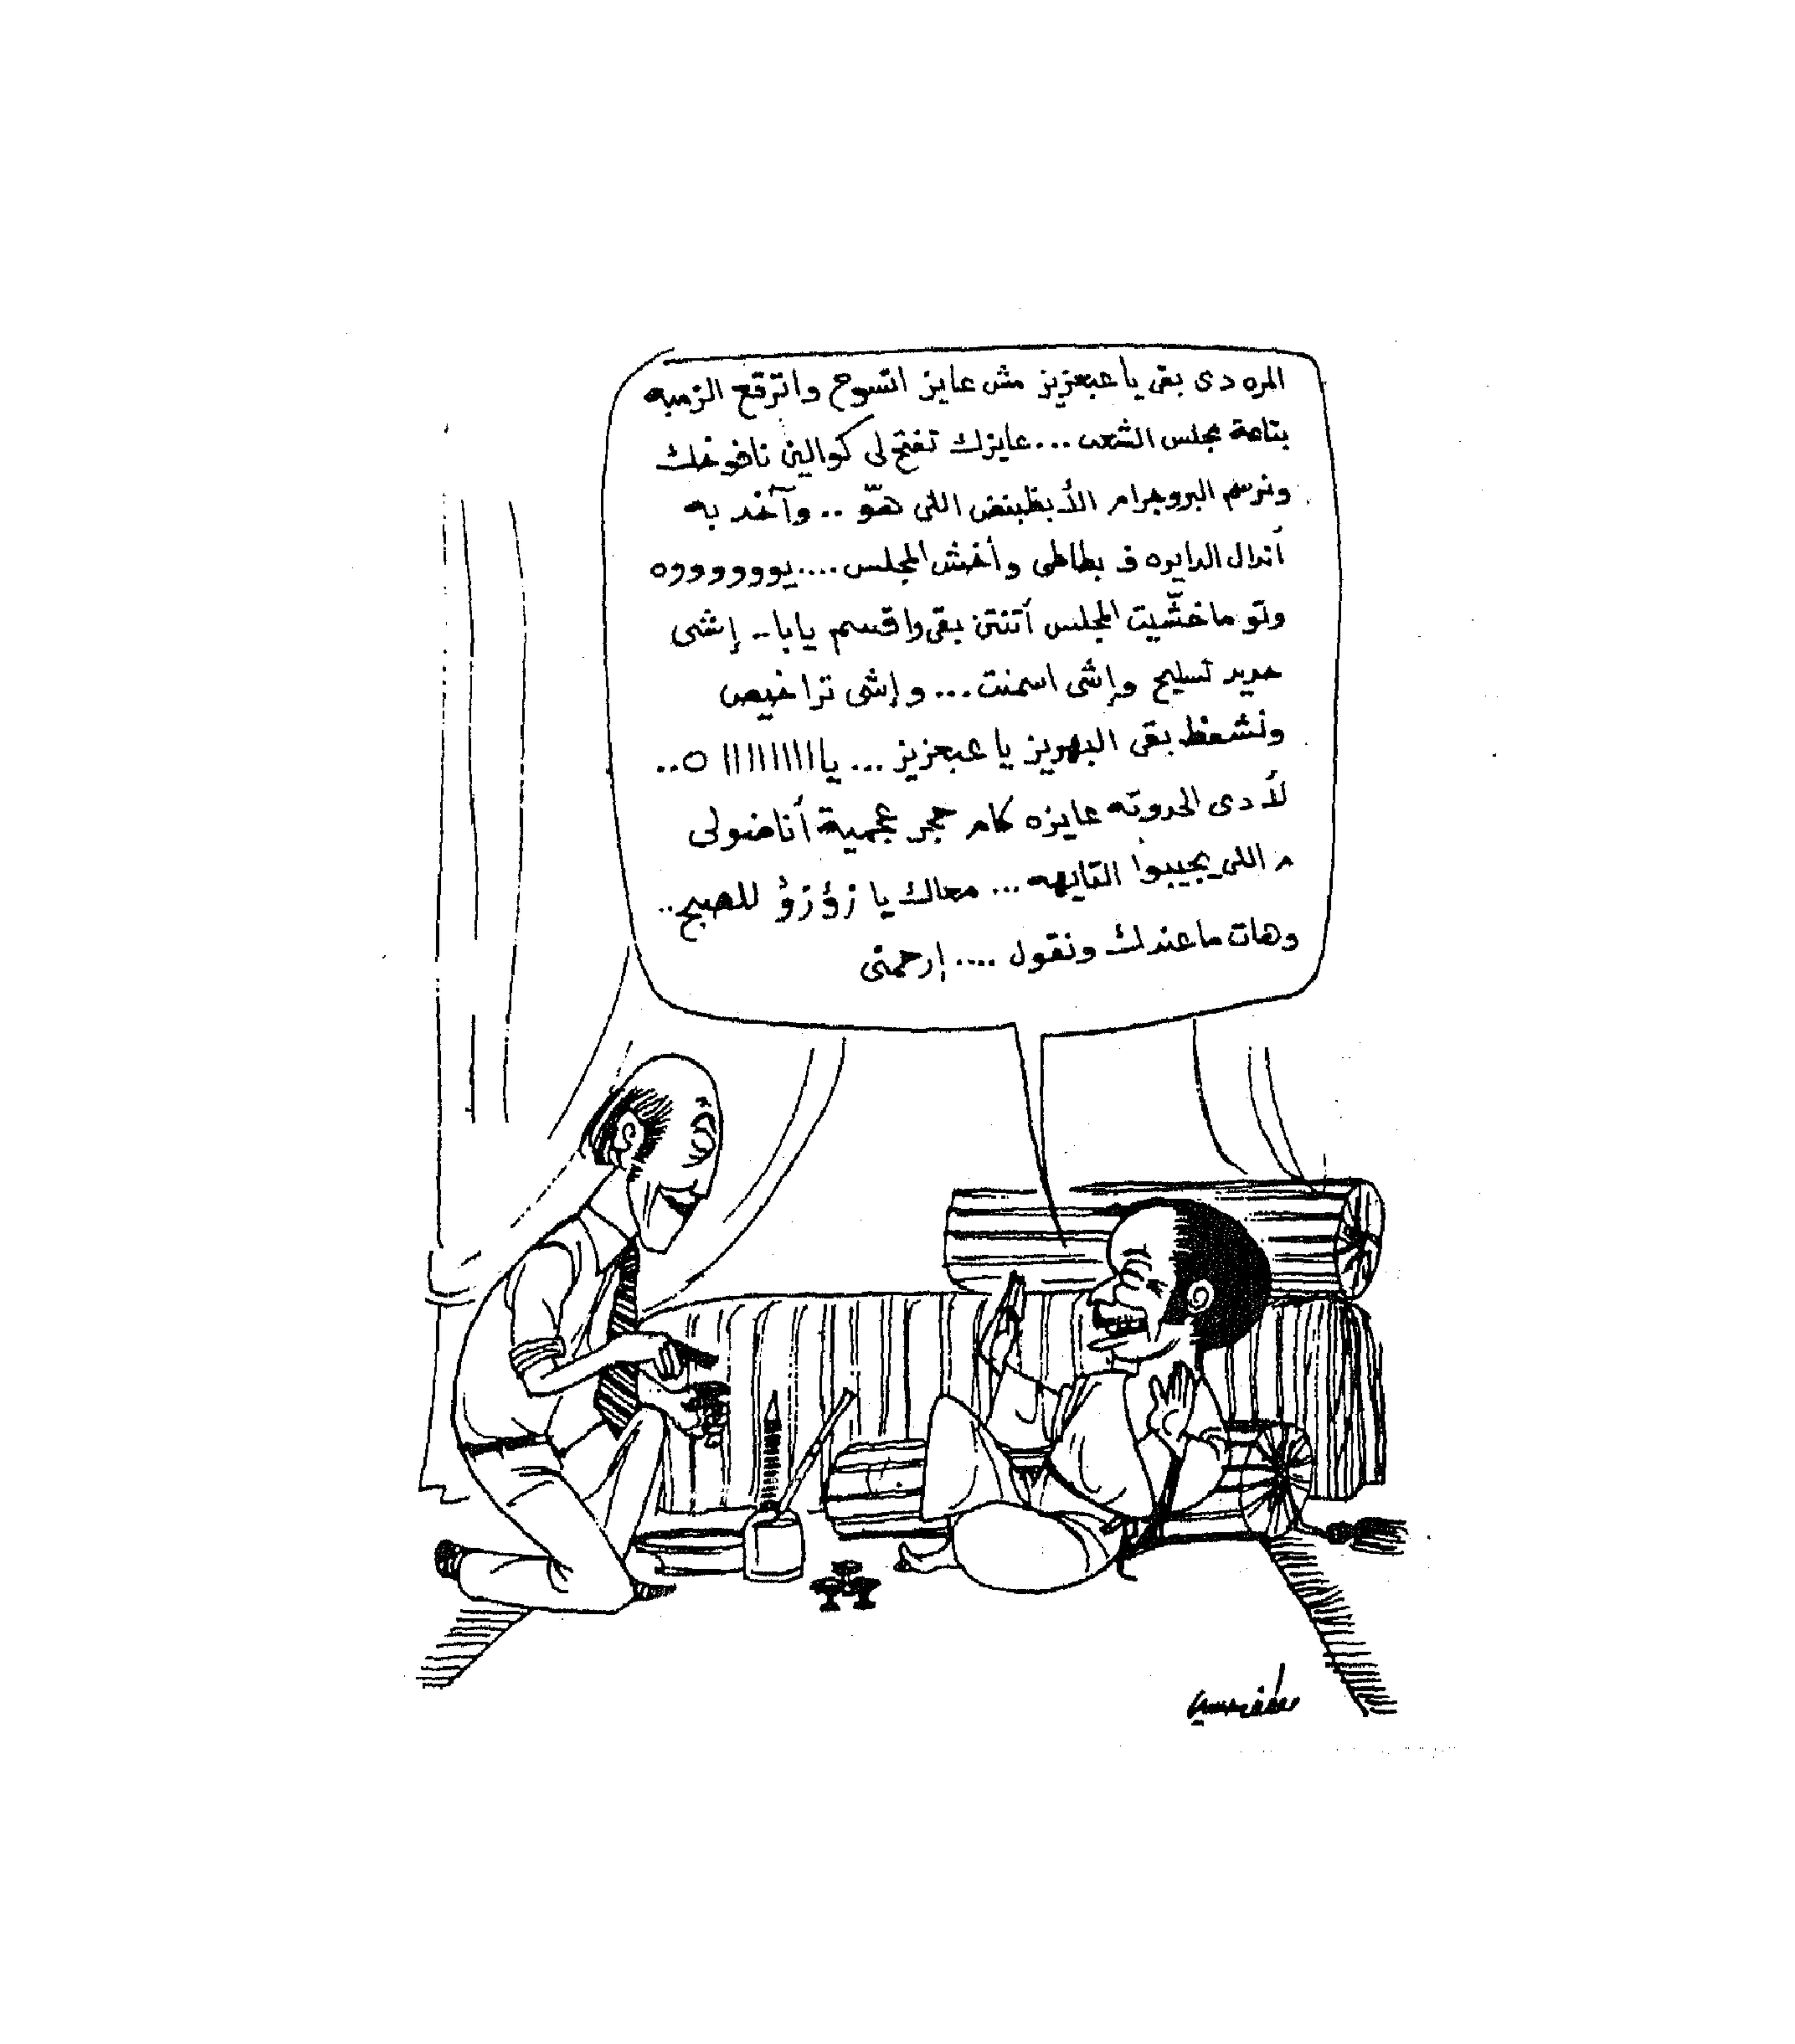 المره دى بقى يا عبعزيز مش عايز اتسوح واترقع الزمبه
بتاعة مجلس الشعب ... عايزك تفتح لى كوالين نافوخك
ونرسم البروجرام الأبظبنض اللى هوّ .. وآخد به
أندال الدايره ف بطاطى وأخش المجلس .... يووووووه
وتو ما خشّيت المجلس أتنتن بقى واقسم يابا .. إشى
حديد تسليح وإشى اسمنت ... وإشى تراخيص
ونشفط بقى البهريز يا عبعزيز ... يااااااااااه ..
لأ دى الحدوته عايزه كام حجر عجمية أناضولى
م اللى يجيبوا التايهه ... معاك يا زؤزؤ للصبح ..
وهات ما عندك ونقول .... إرحمنى